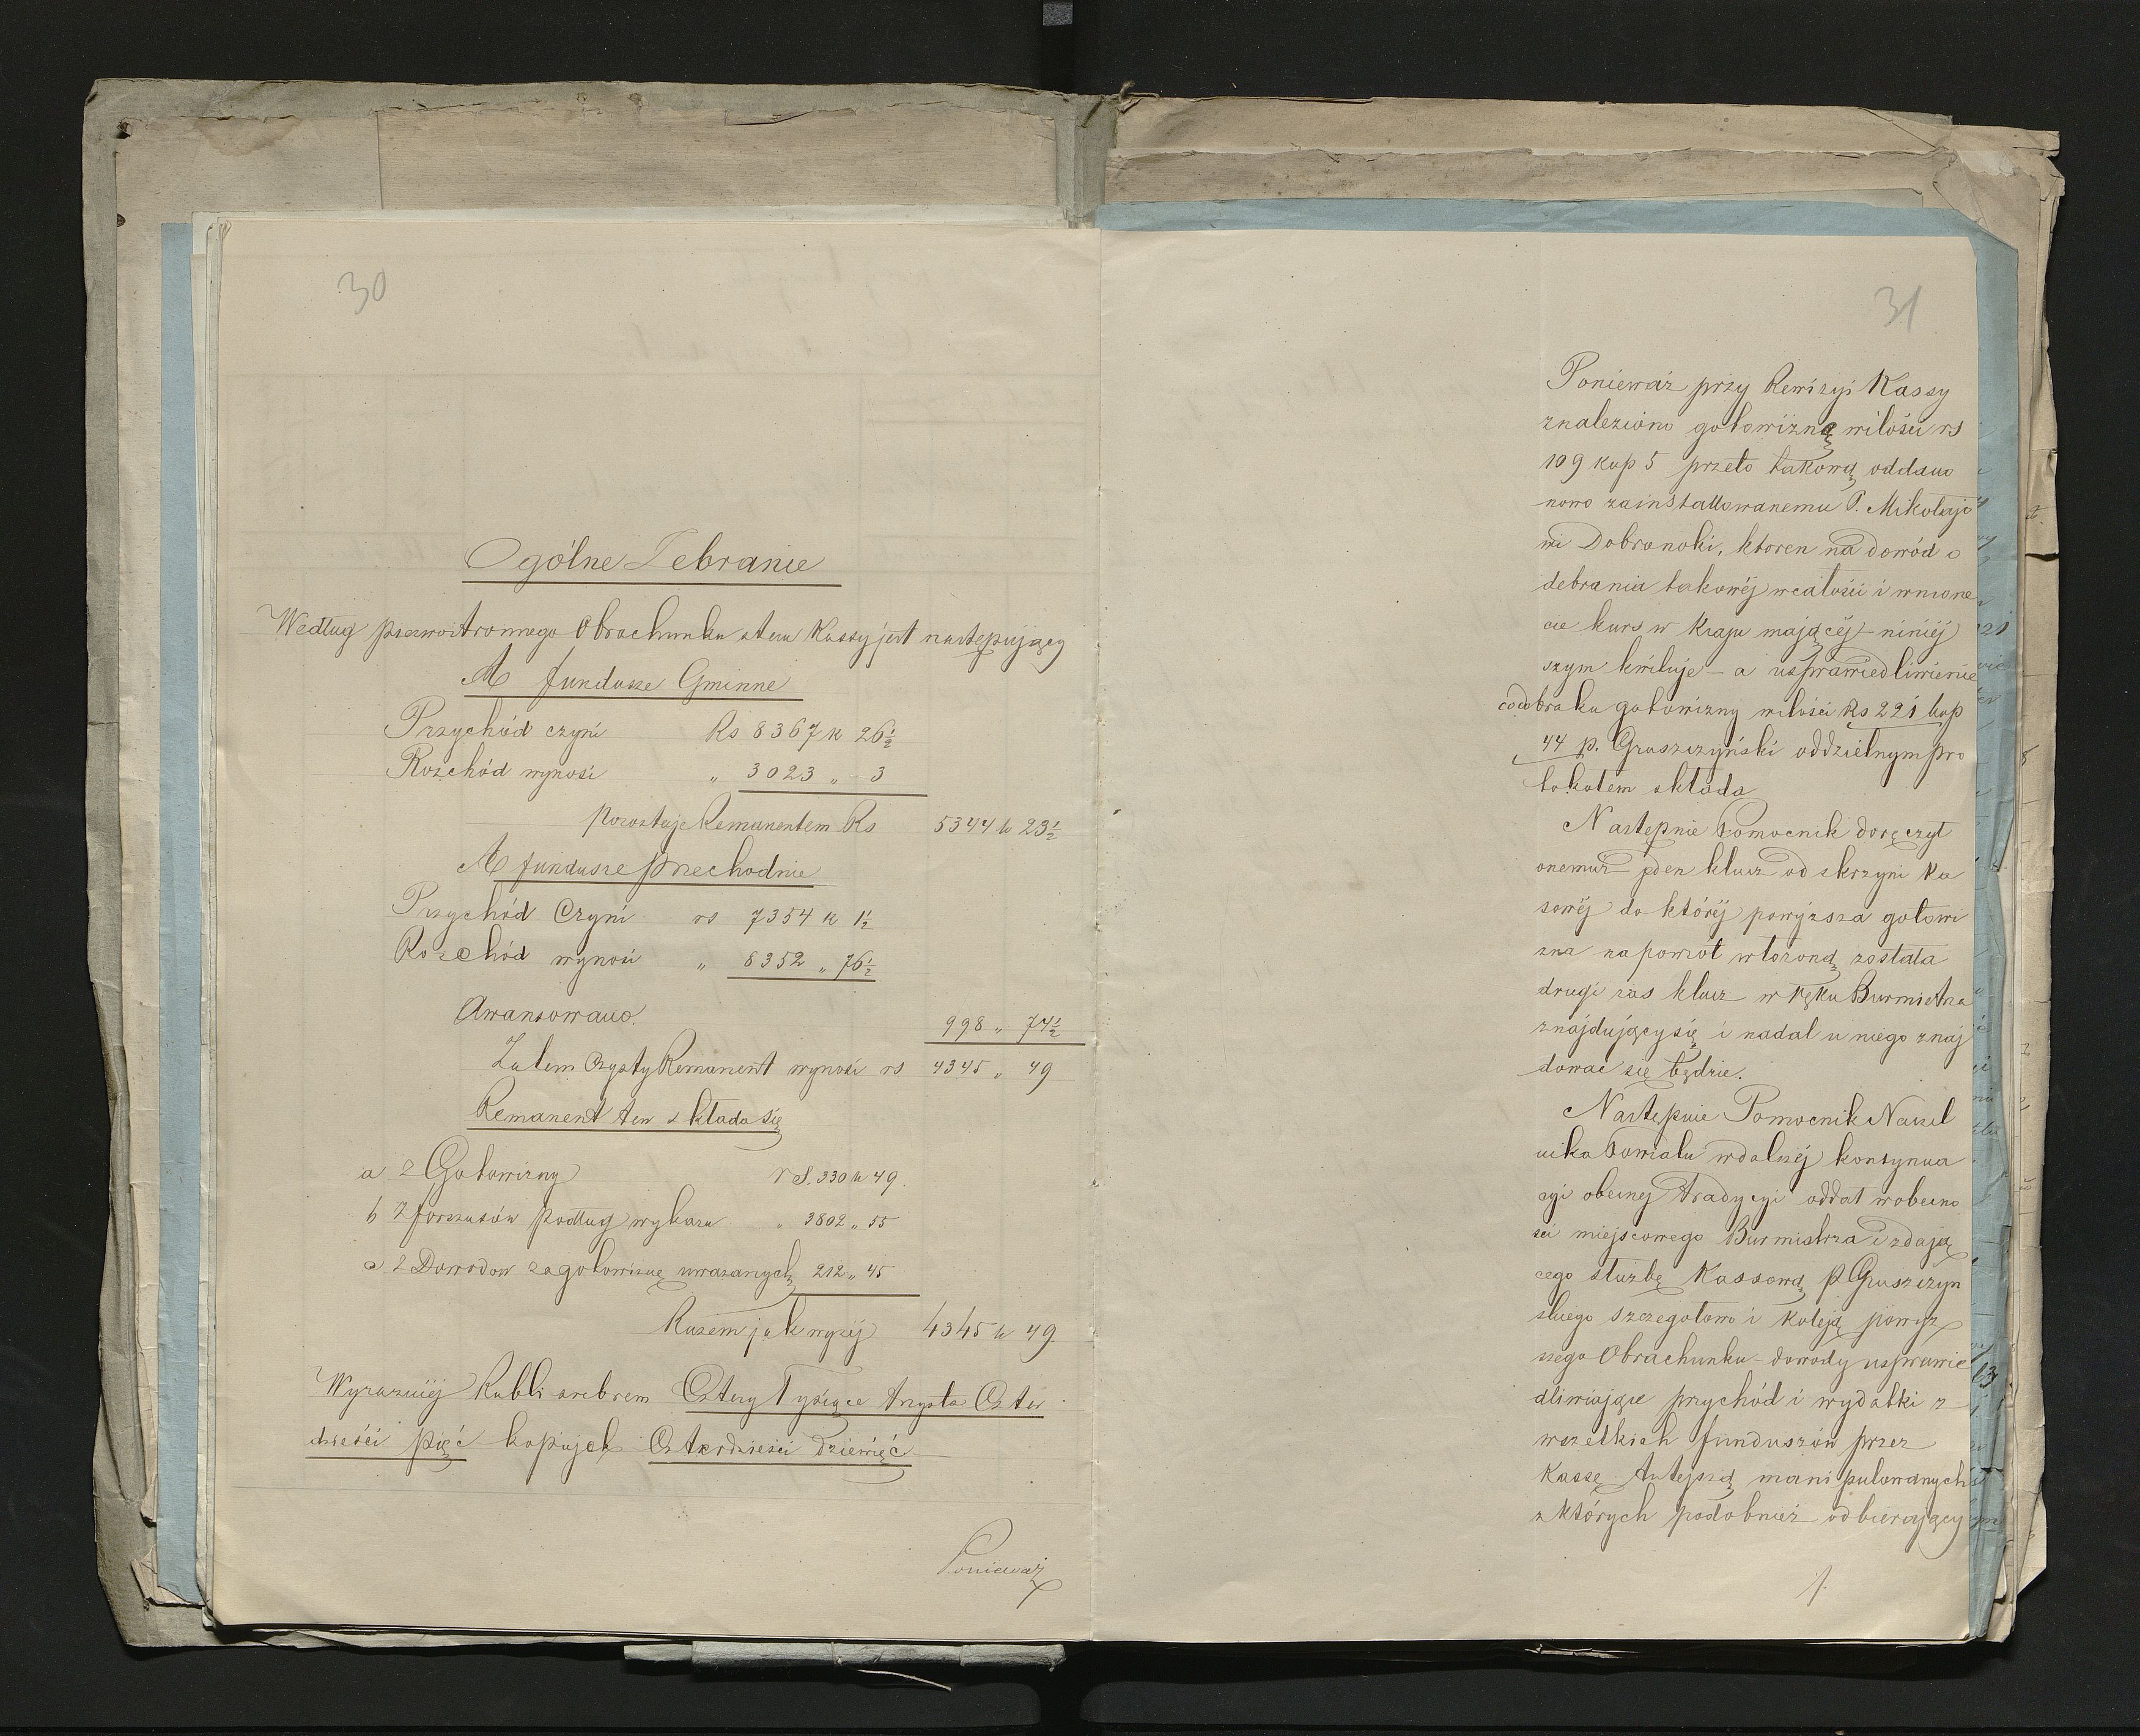 30
Ogólne Zebranie
Według przewostronnego Obrachunku stan Kassy jest następujący
A fundusze Gminne
Przychód czyni Rs 8367 k 26½
Rozchód wynosi „ 3023 „ 3
pozostaje Remanentem Rs 5344 k 23½
A fundusze przechodnie
Przychód Czyni rs 7354 k 1½
Rozchód wynosi „ 8352 „ 76½
Awansowano. 998 „ 74½
Zatem Czysty Remanent wynosi rs 4345 „ 49
Remanent ten składa się
a z Gotowizny r S. 330 k 49.
b Z forszusów podług wykazu „ 3802 „ 55
c Z Dowodow za gotowiznę uważanych 212 „ 45
Razem jak wyżéj 4345 k 49
Wyraźniéj Rubli srebrem Cztery Tysiące trzysta Czter
dzieści pięć kopiejek Czterdzieści dziewięć
Ponieważ
31
Ponieważ przy Rewizyi Kassy
znaleziono gotowiznę wilości rs
109 kop 5 przeto takową oddano
nowo zainstallowanemu P. Mikołajo
wi Dobronoki, ktoren na dowód o
debrania takowéj wcałości i wmone
cie kurs w Kraju mającéj – niniéj
szym kwituje – a usprawiedliwienie
co do braku gotowizny wilości Rs 221 kop
44 p. Gruszczyński oddzielnym pro
tokołem składa
Następnie Pomocnik doręczył
onemuż jeden klucz od skrzyni Ka
sowéj do któréj powyższa gotowi
zna napowrót włożoną została
drugi zaś klucz w ręku Burmistrza
znajdujący się i nadal u niego znaj
dować się będzie.
Następnie Pomocnik Naczel
nika Powiatu wdalszéj kontynua
cyi obecnej tradycyi oddał wobecno
ści miejscowego Burmistrza i zdają
cego służbę Kassową p Gruszczyń
skiego szczegółowo i koleją powyż
szego Obrachunku – dowody usprawie
dliwiające przychód i wydatki z
wszelkich funduszów przez
Kassę tutejszą manipulowanych
z których podobnież odbierający
/.